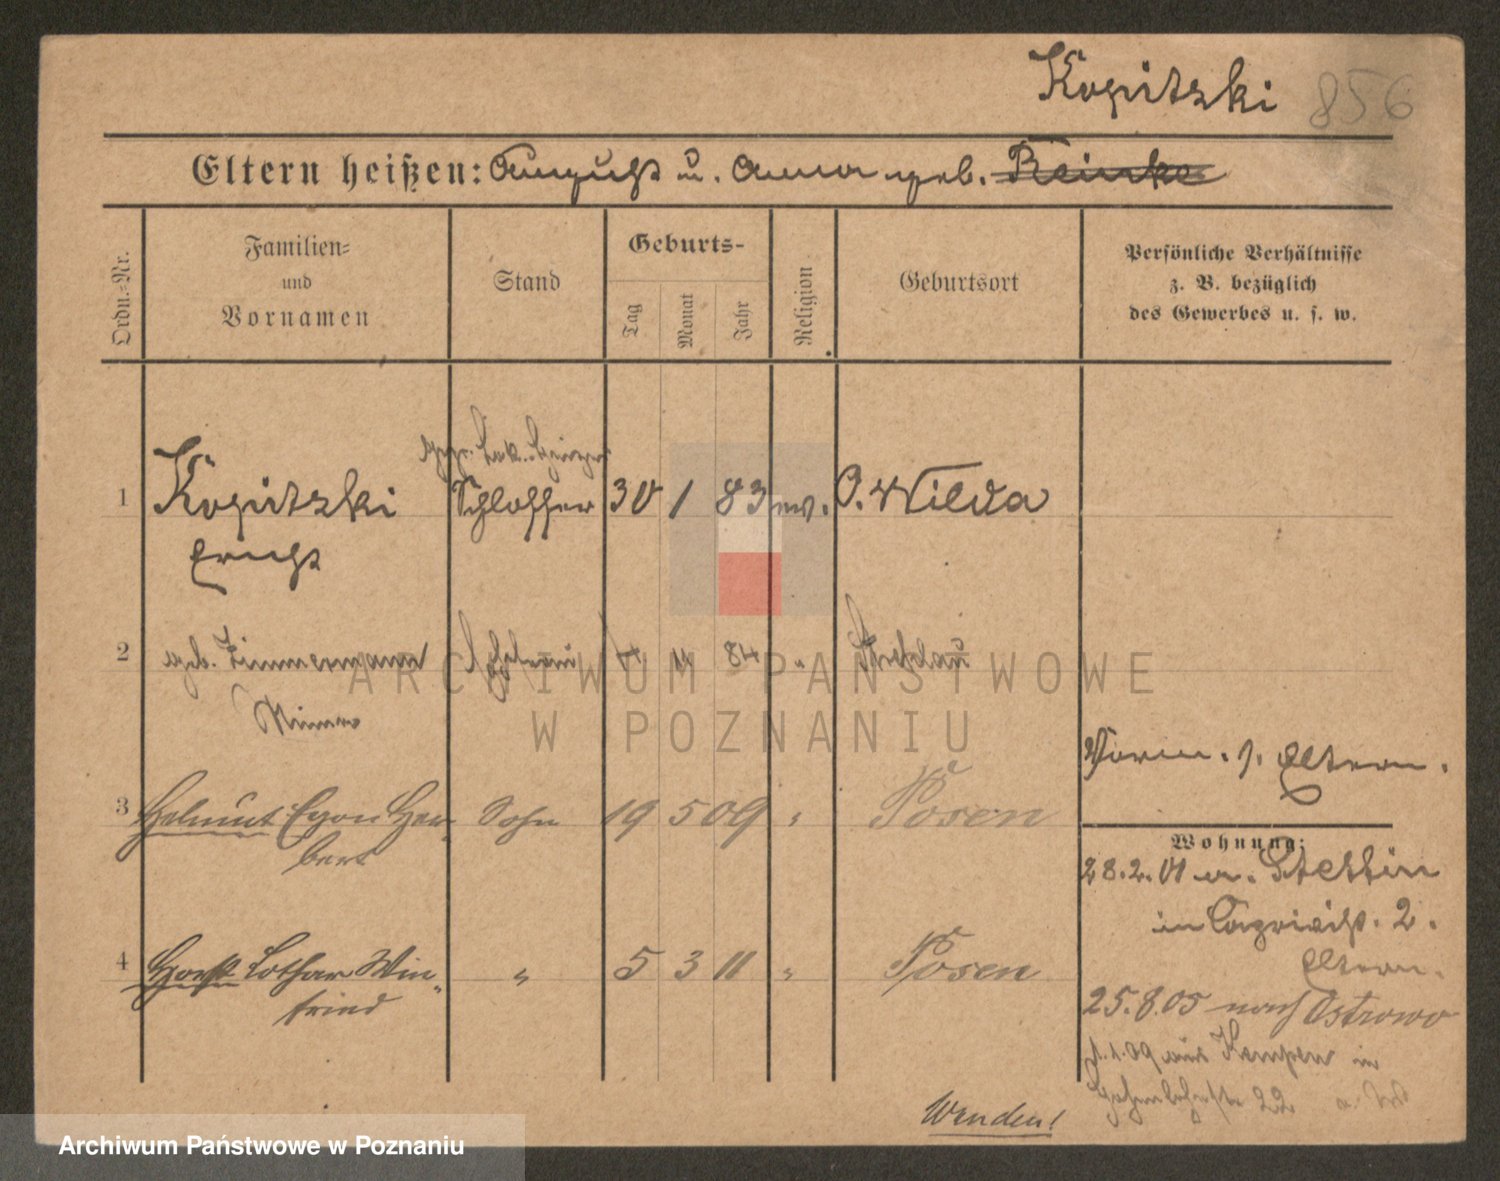 Kopitzki 856
Eltern heißen: August u. Anna geb. Reinke
Ordn.-Nr.
Familien-
und
Vornamen
Stand
Geburts-
Tag
Monat
Jahr
Religion
Geburtsort
Persönliche Verhältnisse
z. B. bezüglich
des Gewerbes u. s. w.
1 Kopitzki Schlosser 30 1 83 ev. O. Wilda
Erich
2 geb. Zimmermann Ehefrau 84 "
3 Helmut Egon Her- Sohn 19 5 09 " Posen
bert
4 Horst Lothar Win- " 5 3 11 " Posen
fried
Vorm. s. Eltern.
Wohnung:
28.2.01 v. Stettin
in 2.
Eltern.
25.8.05 nach Ostrowo
1.1.09 aus Kempen in
22
Wenden!
ARCHIWUM PAŃSTWOWE
W POZNANIU
Archiwum Państwowe w Poznaniu